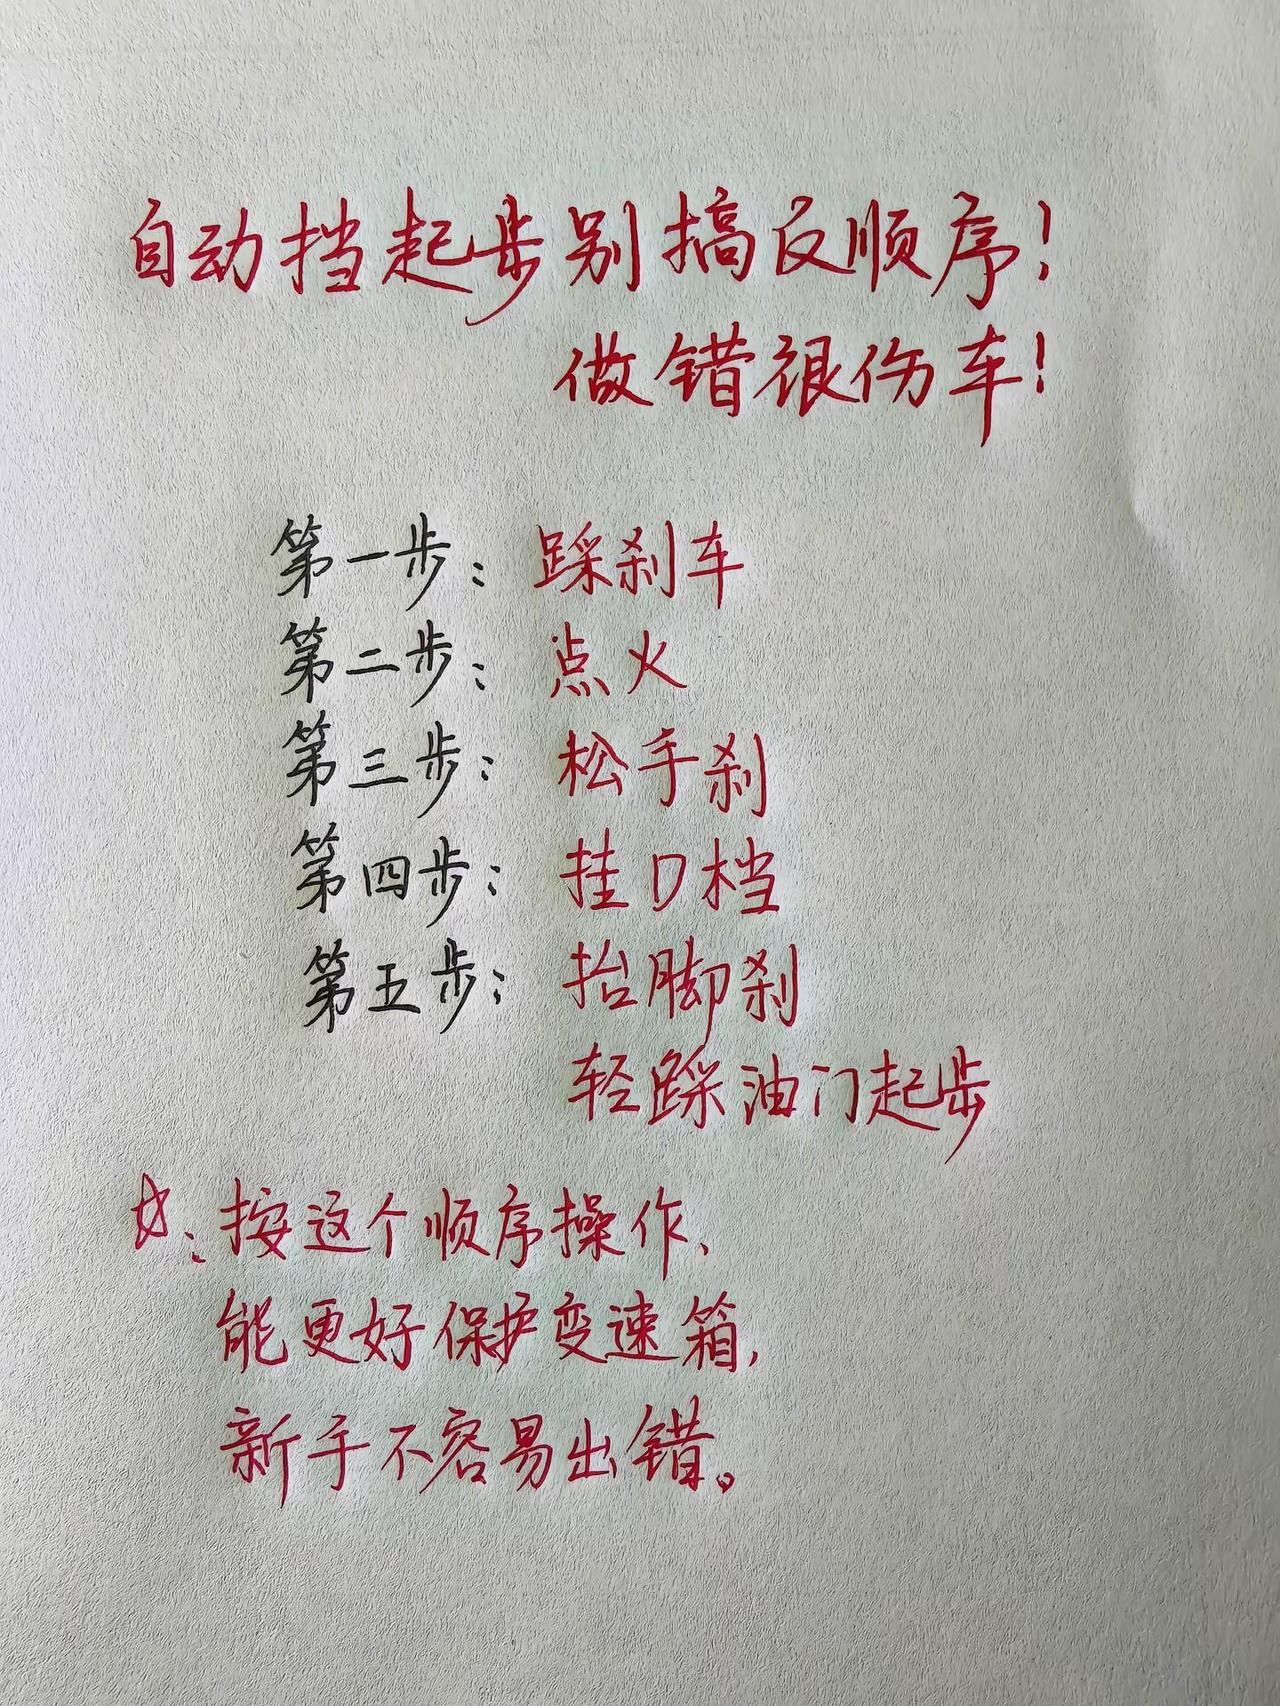 自动挡起步别搞反顺序！
做错很伤车！
第一步：踩刹车
第二步：点火
第三步：松手刹
第四步：挂D档
第五步：抬脚刹
轻踩油门起步
☆：按这个顺序操作、
能更好保护变速箱，
新手不容易出错。